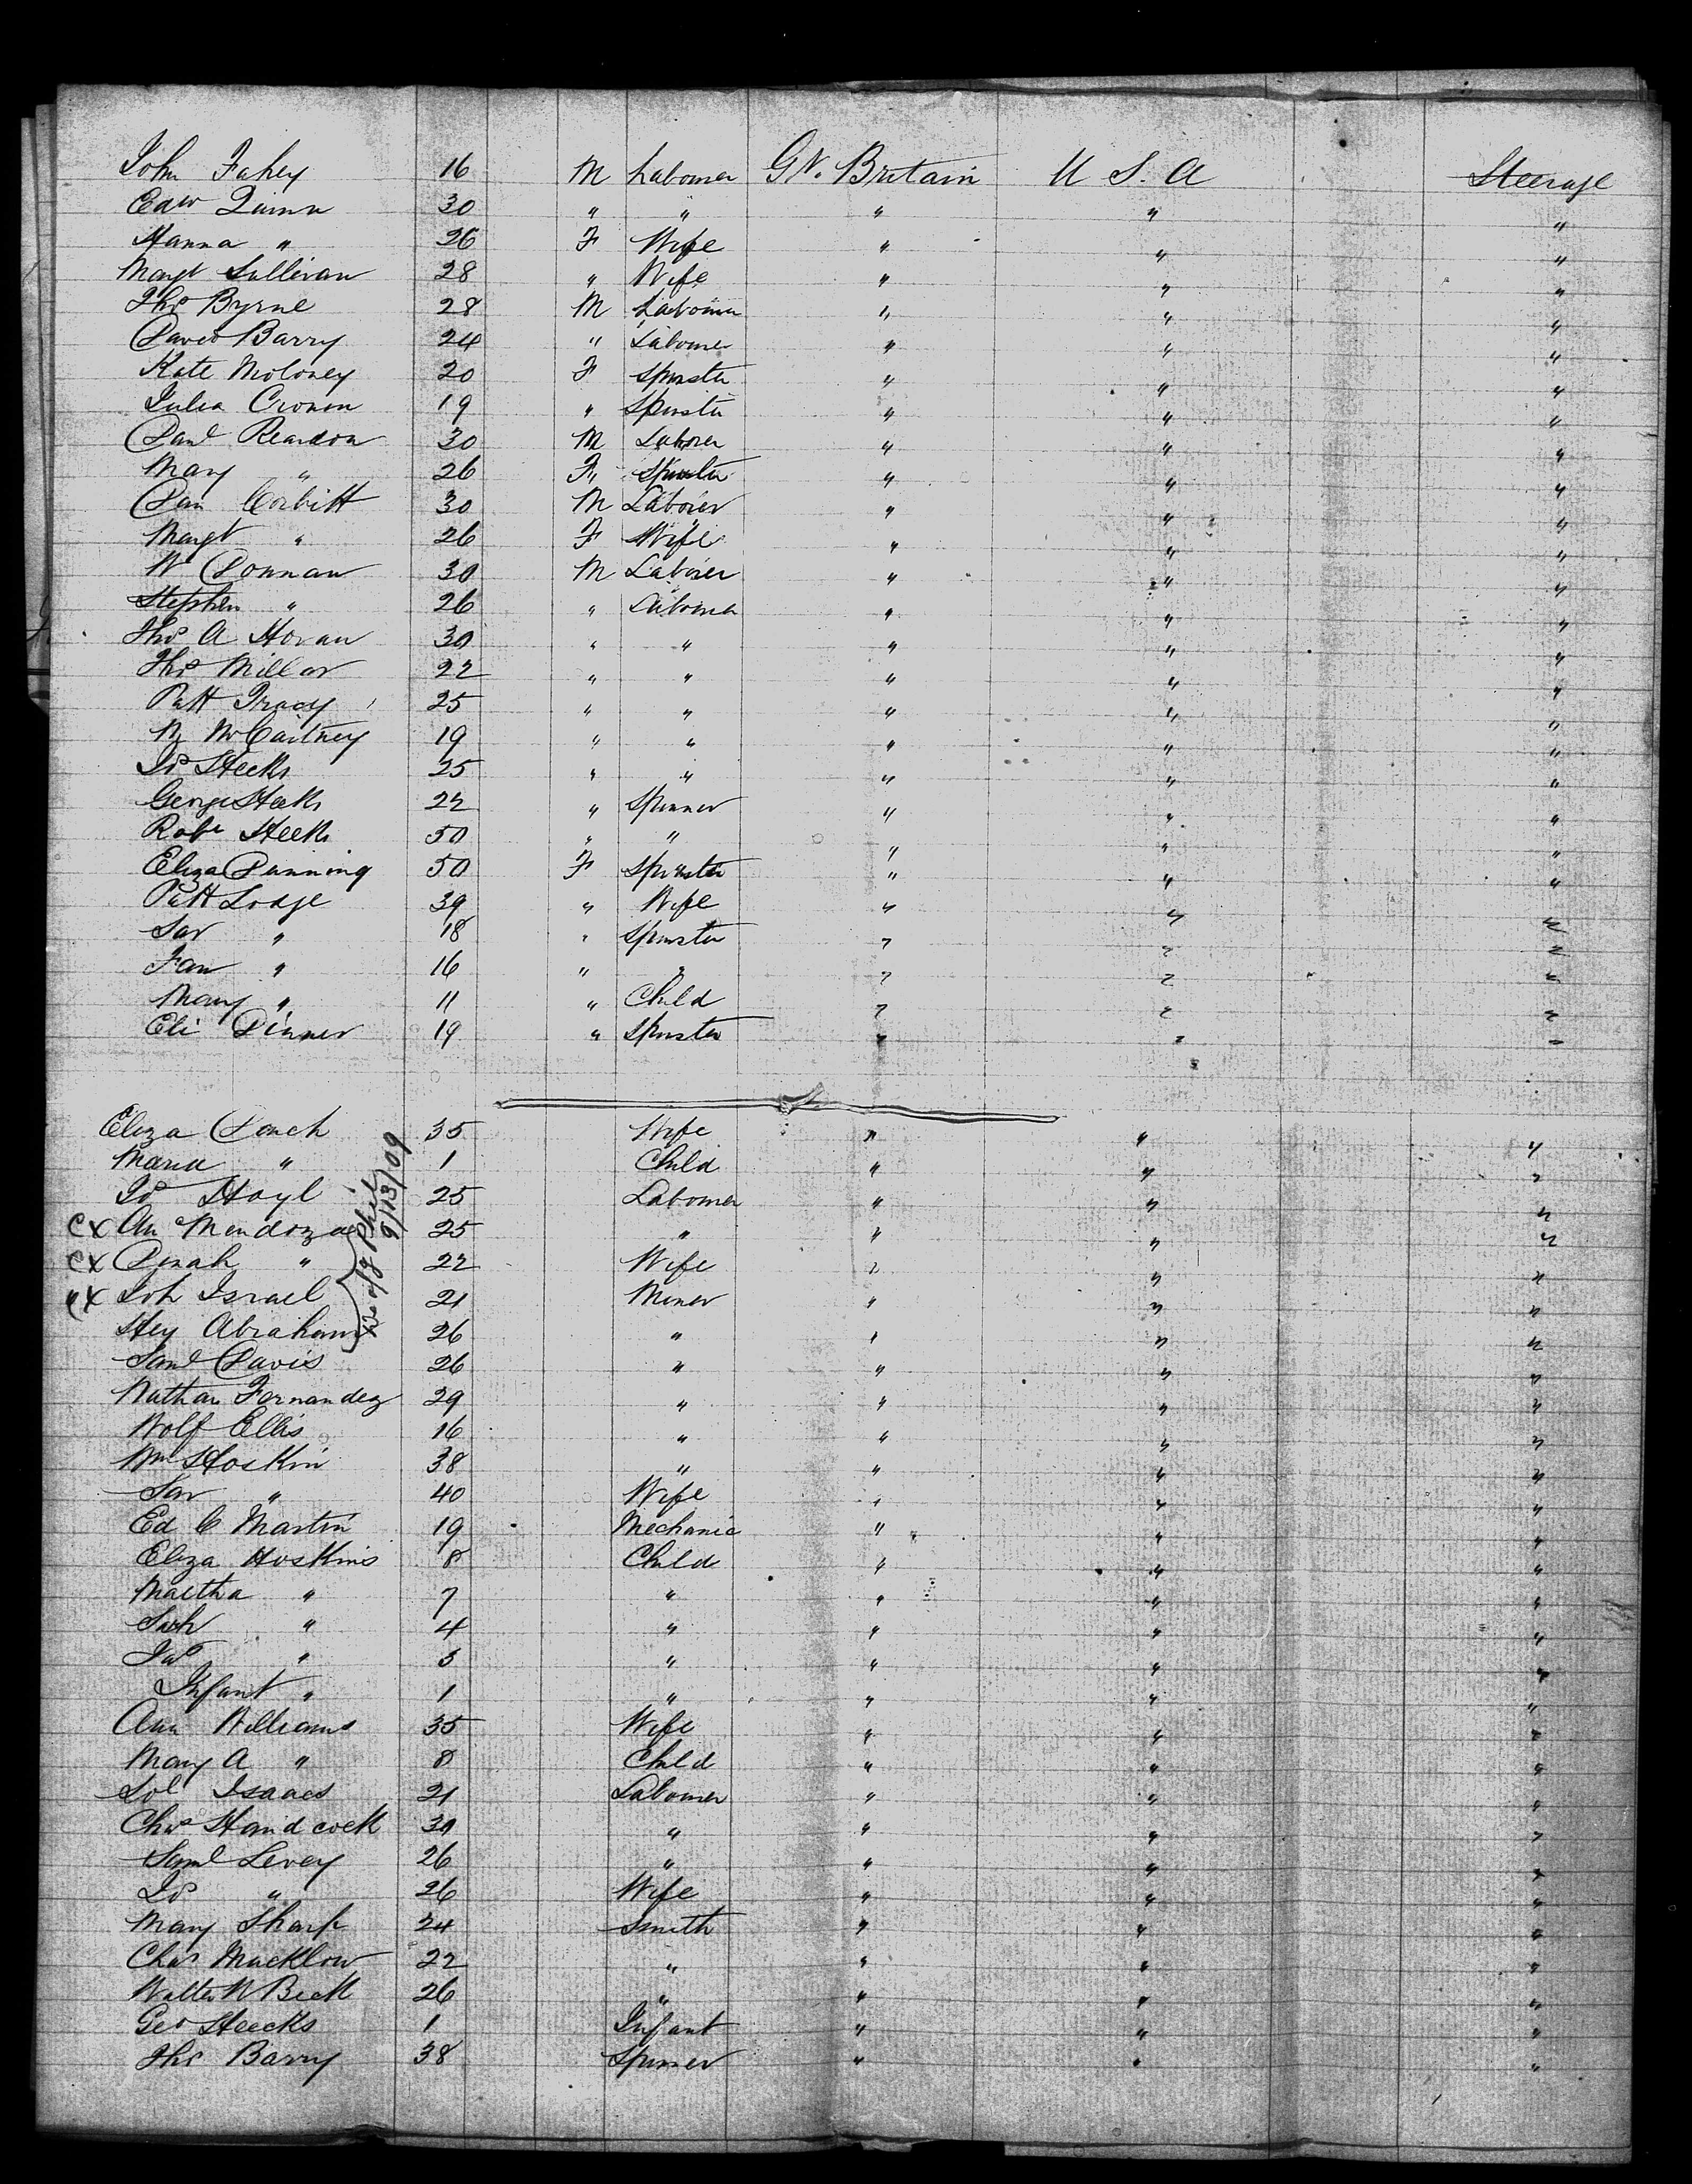 John Fahey 16 M Labourer Gt. Britain U S. A Steerage
Edw Quinn 30 " " " " "
Hanna " 26 F Wife " " "
Margt Sullivan 28 " Wife " " "
Thos Byrne 28 M Labourer " " "
David Barry 24 " Labourer " " "
Kate Moloney 20 F Spinster " " "
Julia Cronin 19 " Spinster " " "
Danl Reardon 30 M Laborer " " "
Mary " 26 F " Spinster " " "
Dan Corbitt 30 M Laborer " " "
Margt " 26 F Wife " " "
W Donnan 30 M Laborer " " "
Stephen " 26 " Labourer " " "
Thos A Horan 30 " " " " "
Thos Millar 22 " " " " "
Patt Tracy 25 " " " " "
M McCartney 19 " " " " "
Jos Steeks 25 " " " " "
George Steeks 22 " Spinner " " "
Robt Steeks 50 " " " " "
Eliza Dunning 50 F Spinster " " "
Patt Lodge 39 " Wife " " "
Sar " 18 " Spinster " " "
Fan " 16 " " " " "
Mary " 11 " Child " " "
Eli Dinner 19 " Spinster " " "
Eliza Dench 35 Wife " " "
Maria " 1 Child " " "
Jos Hoyl 25 Labourer " " "
CX An Mendoza 25 " " " "
CX Dinah " 22 Wife " " "
CX Joh Israel 21 Miner " " "
Phil 9/13/09
Hey Abrahams 26 " " " "
Saml Davis 26 " " " "
Nathan Fernandez 29 " " " "
Wolf Ellis 16 " " " "
Wm Hoskin 38 " " " "
Sar " 40 Wife " " "
Ed C Martin 19 Mechanic " " "
Eliza Hoskins 8 Child " " "
Martha " 7 " " " "
Sarh " 4 " " " "
Jas " 3 " " " "
Infant " 1 " " " "
Ann Williams 35 Wife " " "
Mary A " 8 Child " " "
Sol Isaacs 21 Labourer " " "
Chas Handcock 30 " " " "
Saml Levey 26 " " " "
" 26 Wife " " "
Mary Sharp 24 Smith " " "
Chas Macklow 22 " " " "
Walter W Beck 26 " " " "
Geo Steecks 1 Infant " " "
Thos Barry 38 Spinner " " "